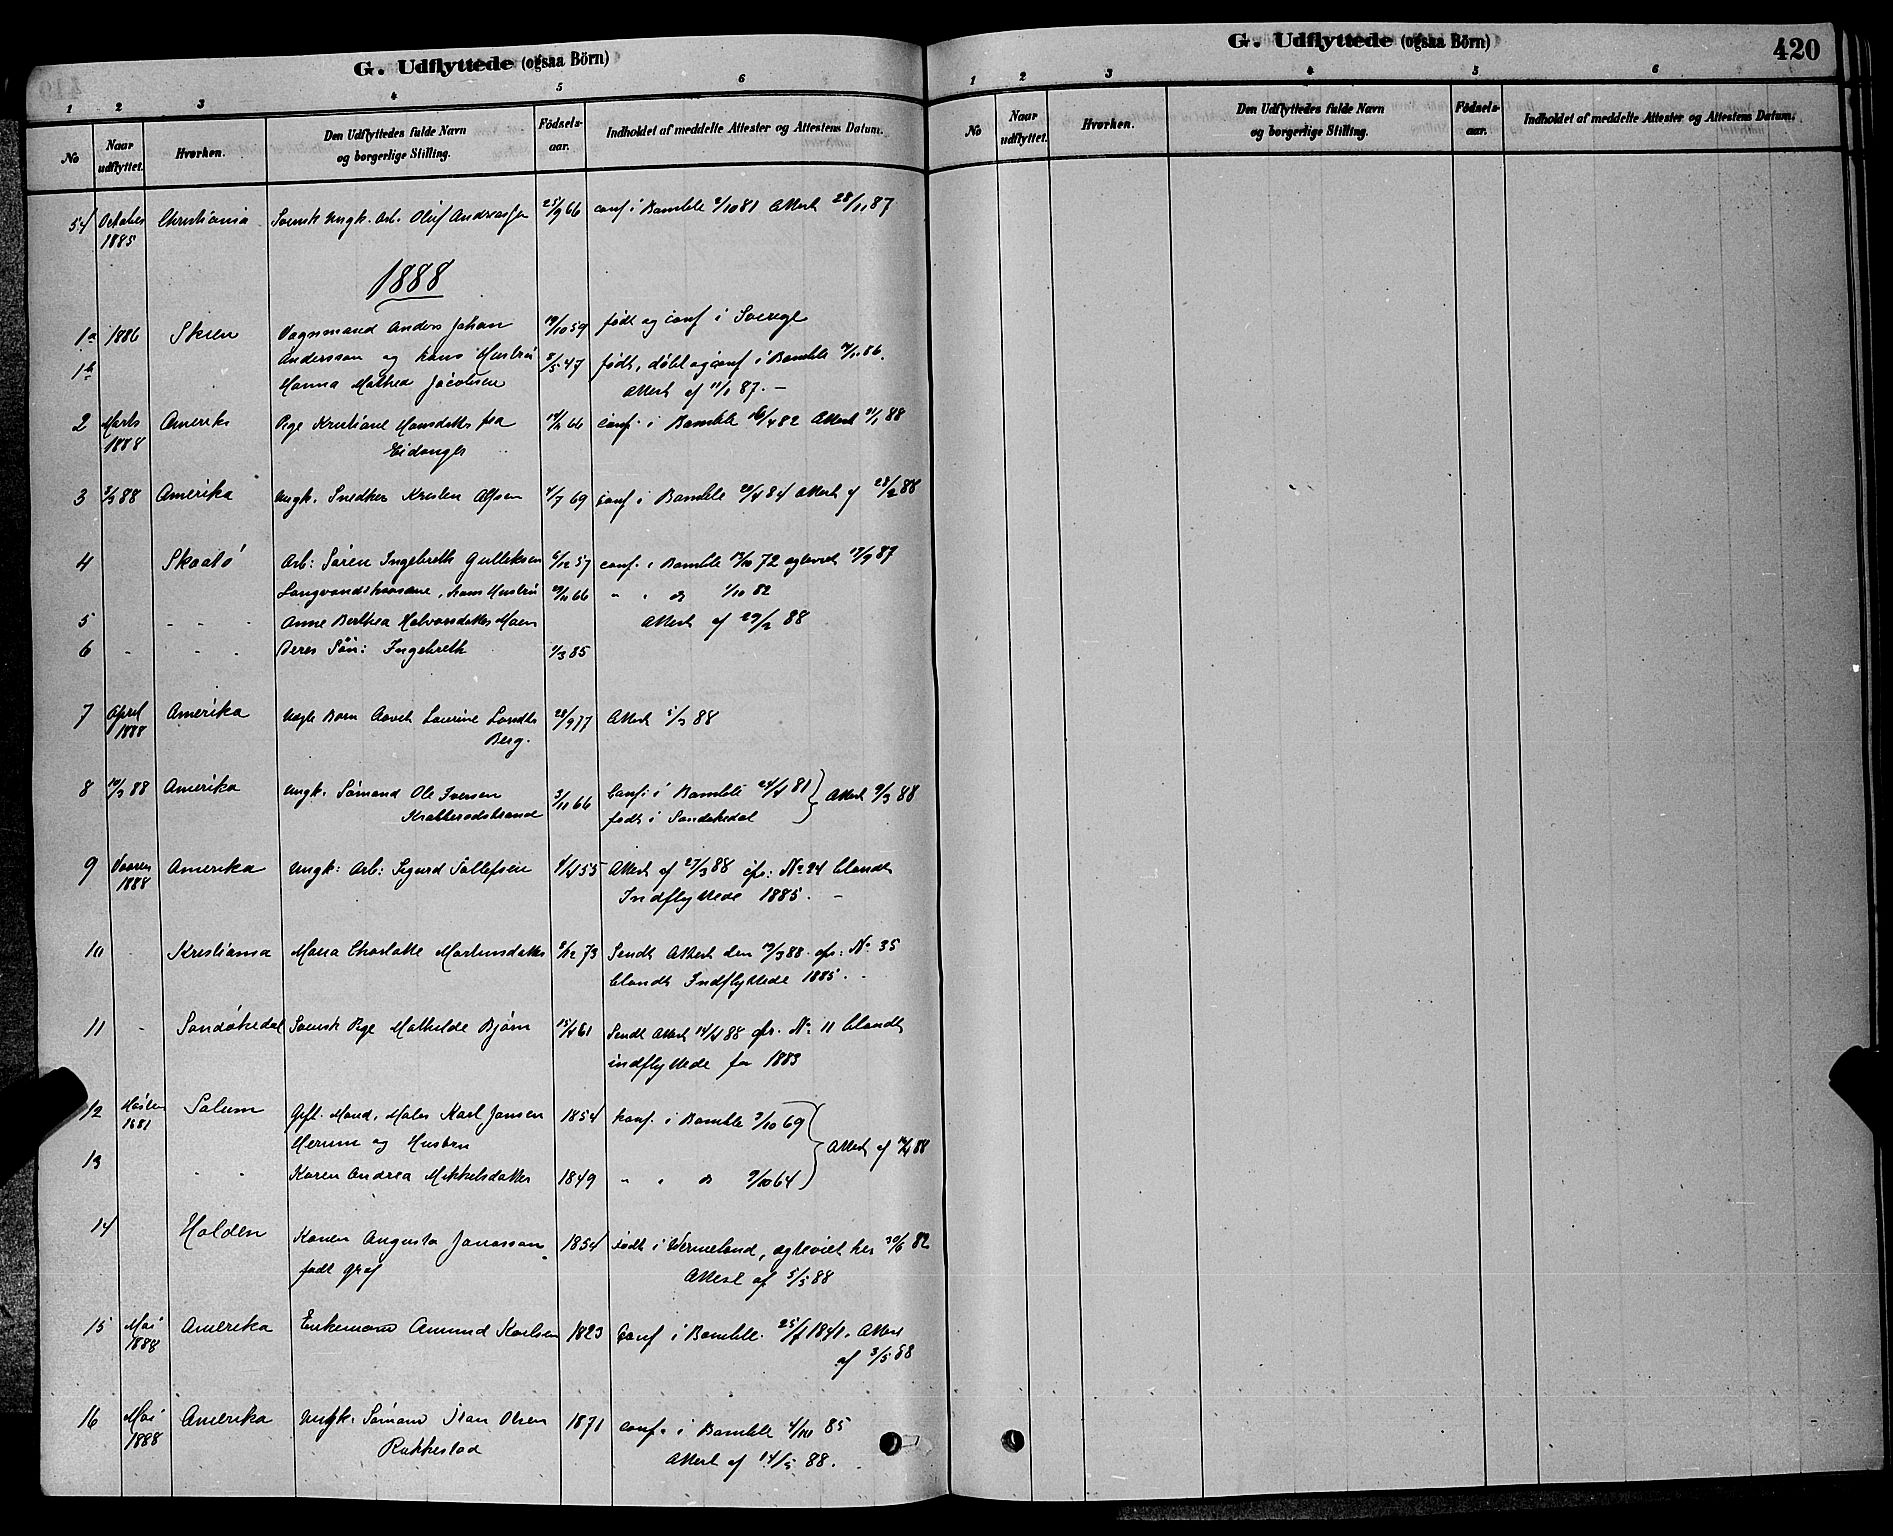 G. Udflyttede (ogsaa Börn)
1 2 3 4 5 6
No
Naar udflyttet.
Hvorhen.
Den Udflyttedes fulde Navn og borgerlige Stilling.
Födsels-aar.
Indholdet af meddelte Attester og Attestens Datum.
54 October 1885 Christiania Svensk Ungk. Arb. Oluf 25/9 66 conf. i Bamble 2/10 81 Attest 28/11 87
1888
1a 1886 Skien Vognmand Anders Johan 19/10 59 født og conf i Sverige
1b Andersson og hans Hustru 8/5 47 født, døbt og conf i Bamble
Hanna Mathea Jacobsen Attest af 11/1 87. -
2 Marts 1888 Amerika Pige Kristiane Hansdatter fra conf. i Bamble 16/4 82 Attest 31/1 88
Eidanger
3 3/3 88 Amerika Ungk. Snedker Kristen Olsen 4/7 69 conf i Bamble 20/4 84 Attest af 28/2 88
4 Skaatø Arb: Søren Ingebreth Gulleksen 6/12 57 conf. i Bamble 13/10 72 agteviet 17/9 87
Langvandshaasene, hans Hustru " " do 1/10 82
5 - - - Anne Berthea Halvorsdatter Moen Attest af 29/2 88
6 - - - Deres Søn: Ingebreth 1/3 85
7 April 1888 Amerika Ungk Barn Laurine Lunde 28/9 77 Attest 5/3 88
Berg.
8 10/3 88 Amerika Ungk. Sømand Ole Iversen 3/11 66 Conf. i Bamble 24/4 81 } Attest 9/3 88
Krabberødstrand født i Sandøkedal
9 Vaaren 1888 Amerika Ungk: Arb: Sigurd Tollefsen 4/4 55 Attest af 27/3 88 cfr: No 24 blandt
Indflyttede 1885. -
10 - Kristiania Maria Charlotte Martinsdatter 2/12 73 Sendt Attest den 19/3 88. cfr: No 35
blandt Indflyttede 1885. -
11 - Sandøkedal Svensk Pige Mathilde Bjørn 15/4 61 Sendt Attest 14/4 88 cfr. No 11 blandt
indflyttede for 1883
12 Høsten 1881 Solum Gift. Mand, Maler Karl Jansen 1854 konf. i Bamble 3/10 69 } Attest af 88
Herum og Hustru
13 - - Karen Andrea Mikkelsdatter 1849 " " do 9/10 64
14 Holden Konen Augusta Jonasson 1854 født i Wermeland, agteviet her 30/6 82
født Graf Attest af 5/5 88
15 Mai 1888 Amerika Enkemand Amund Karlsen 1823 Conf i Bamble. 25/7 1841. Attest
af 3/5 88
16 Mai 1888 Amerika Ungk. Sømand Isan Olsen 1871 conf. i Bamble 4/10 85
Rakkestad Attest af 14/5 88.
G. Udflyttede (ogsaa Börn) 420
1 2 3 4 5 6
No
Naar udflyttet.
Hvorhen.
Den Udflyttedes fulde Navn og borgerlige Stilling.
Födsels-aar.
Indholdet af meddelte Attester og Attestens Datum.